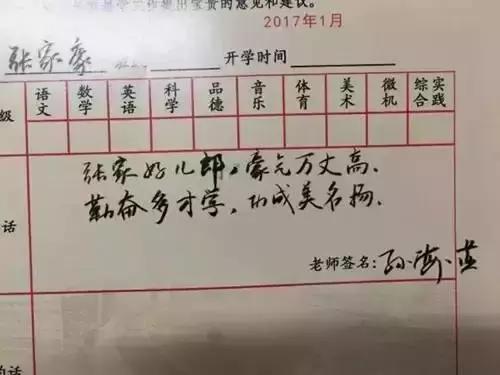 提出宝贵的意见和建议。
2017年1月
张家豪 开学时间
级 语文 数学 英语 科学 品德 音乐 体育 美术 微机 综合实践
张家好儿郎，豪气万丈高、
勤奋多才学，功成美名扬.
话
老师签名：孙海燕
的话